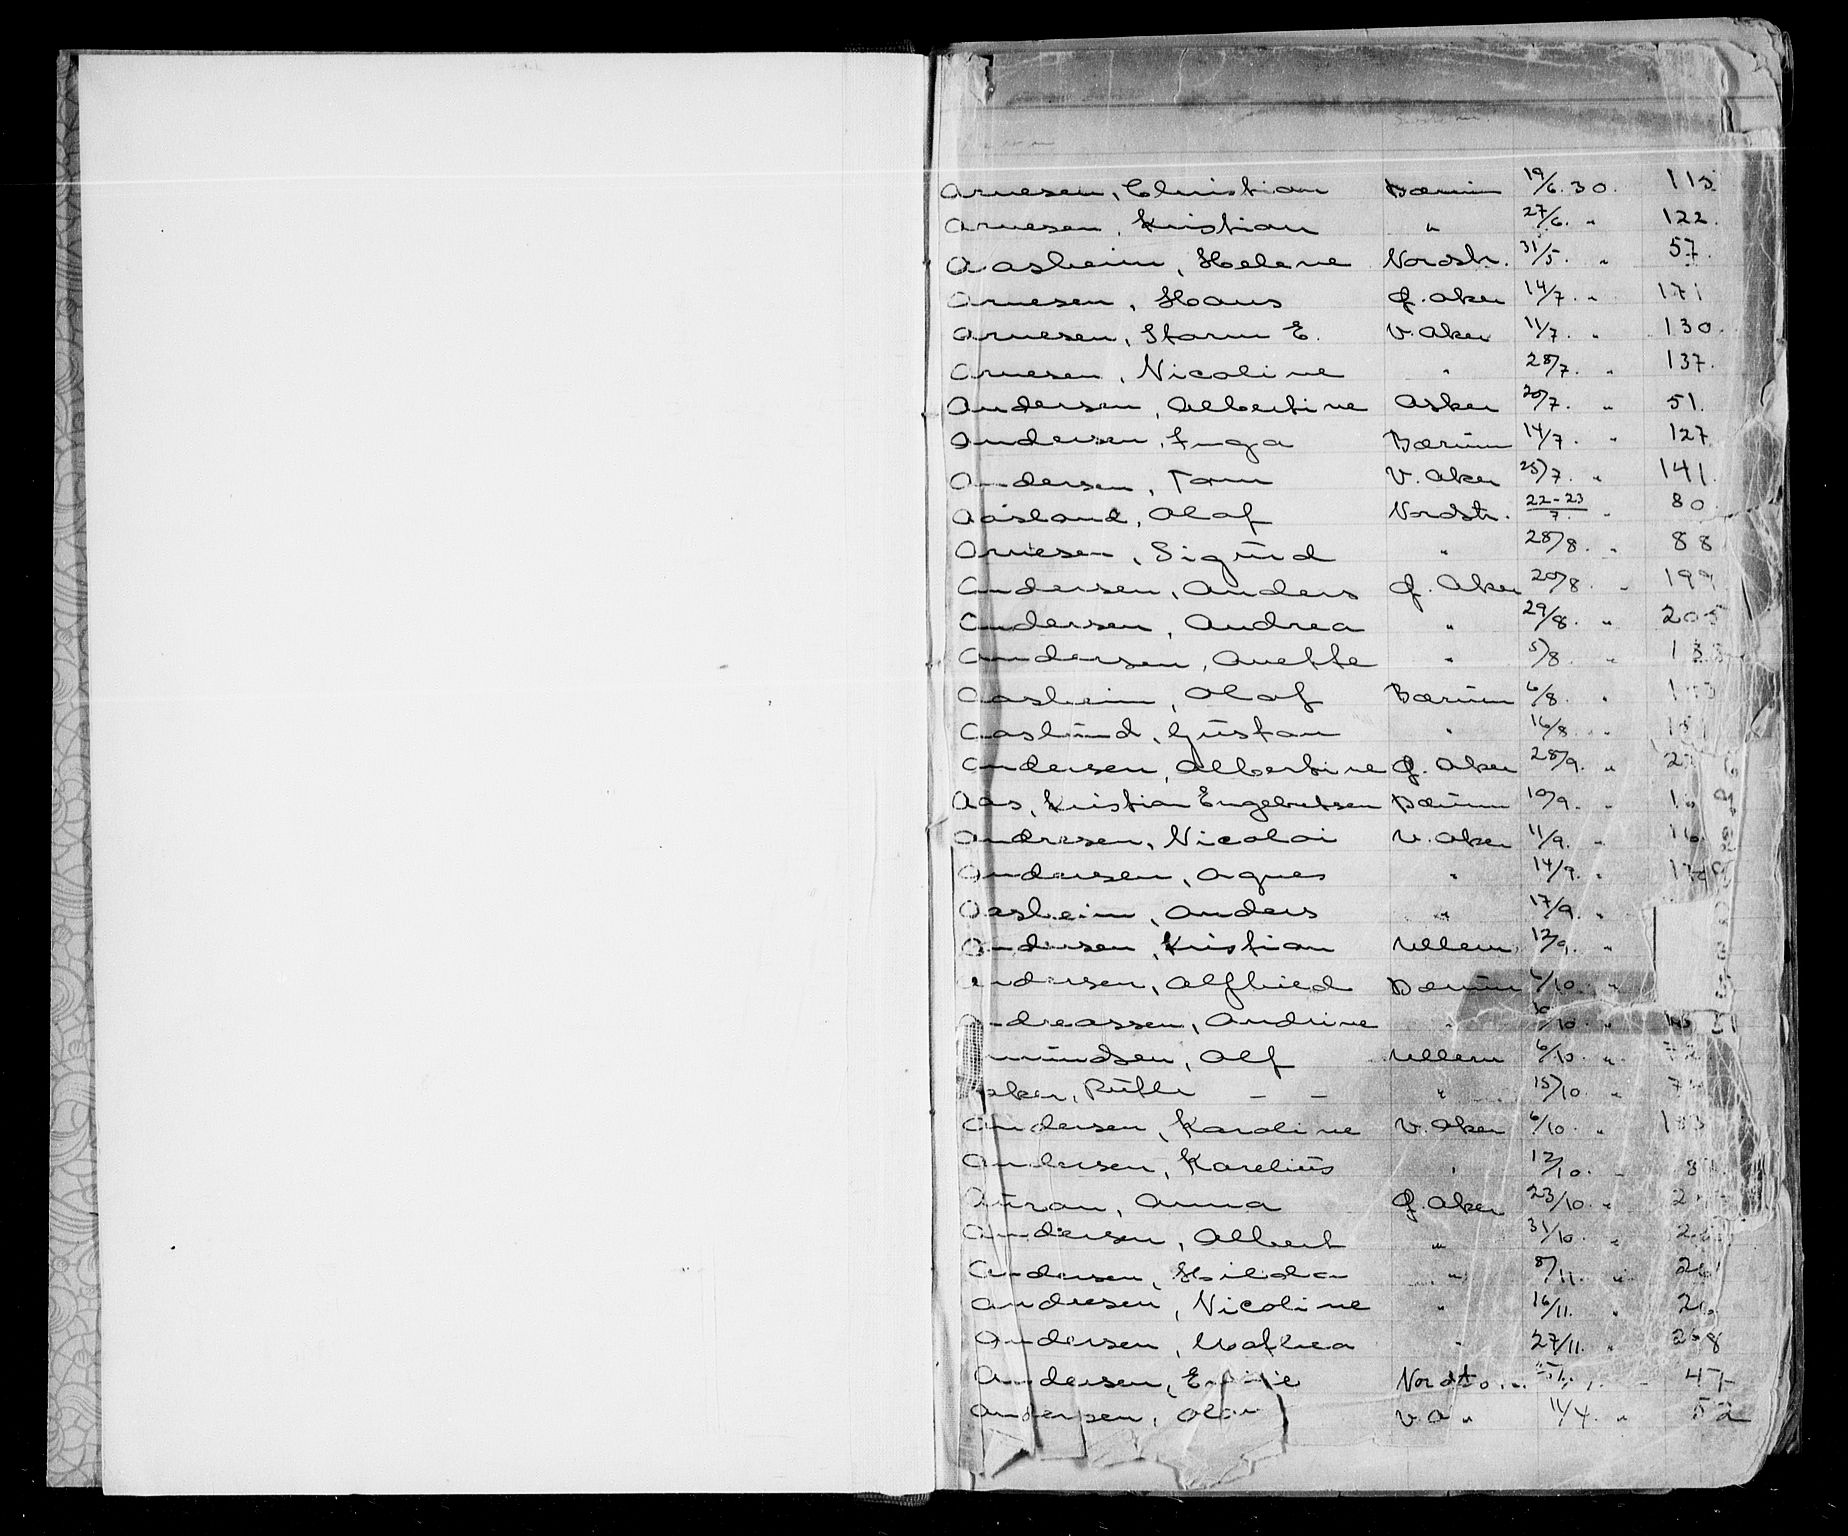 Arnesen, Christian Bærum 19/6. 30. 115
Arnesen, Kristian " 27/6. " 122.
Aasheim, Helene Nordstr. 31/5. " 57.
Arnesen, Hans Ø. Aker 14/7. " 171
Arnesen, Storm E. V. Aker 11/7. " 130.
Arnesen, Nicoline " 28/7. " 137.
Andersen, Albertine Asker 20/7. " 51.
Andersen, Inga Bærum 14/7. " 127
Andersen, Tom V. Aker 25/7. " 141.
Aasland, Olaf Nordstr. 22-23/7. " 80
Arnesen, Sigurd " 28/8. " 88
Andersen, Anders Ø. Aker 20/8. " 199
Andersen, Andrea " 29/8. " 205
Andersen, Anette " 5/8. "
Aasheim, Olaf Bærum 6/8. "
Aaslund, Gustav " 16/8. "
Andersen, Albertine Ø. Aker 28/9. "
Aas, Kristian Engebretsen Bærum 10/9. "
Andresen, Nicolai V. Aker 11/9. "
Andersen, Agnes " 14/9. "
Aasheim, Anders " 17/9. "
Andersen, Kristian Ullern 12/9. "
Andersen, Alfhild Bærum 6/10. "
Andreassen, Andrine " /10. "
mundsen, Alf Ullern 6/10. "
sker, Ruth — — " 15/10. "
Andersen, Karoline V. Aker 6/10. "
Andersen, Karelius " 12/10. "
Auran, Anna Ø. Aker 23/10. "
Andersen, Albert " 31/10. "
Andersen, Hilda " 8/11. "
Andresen, Nicoline " 16/11. "
Andersen, Mathea " 27/11. " 268
Andersen, Nordst 47
Andersen, Olav V. A " 11/4. " 52